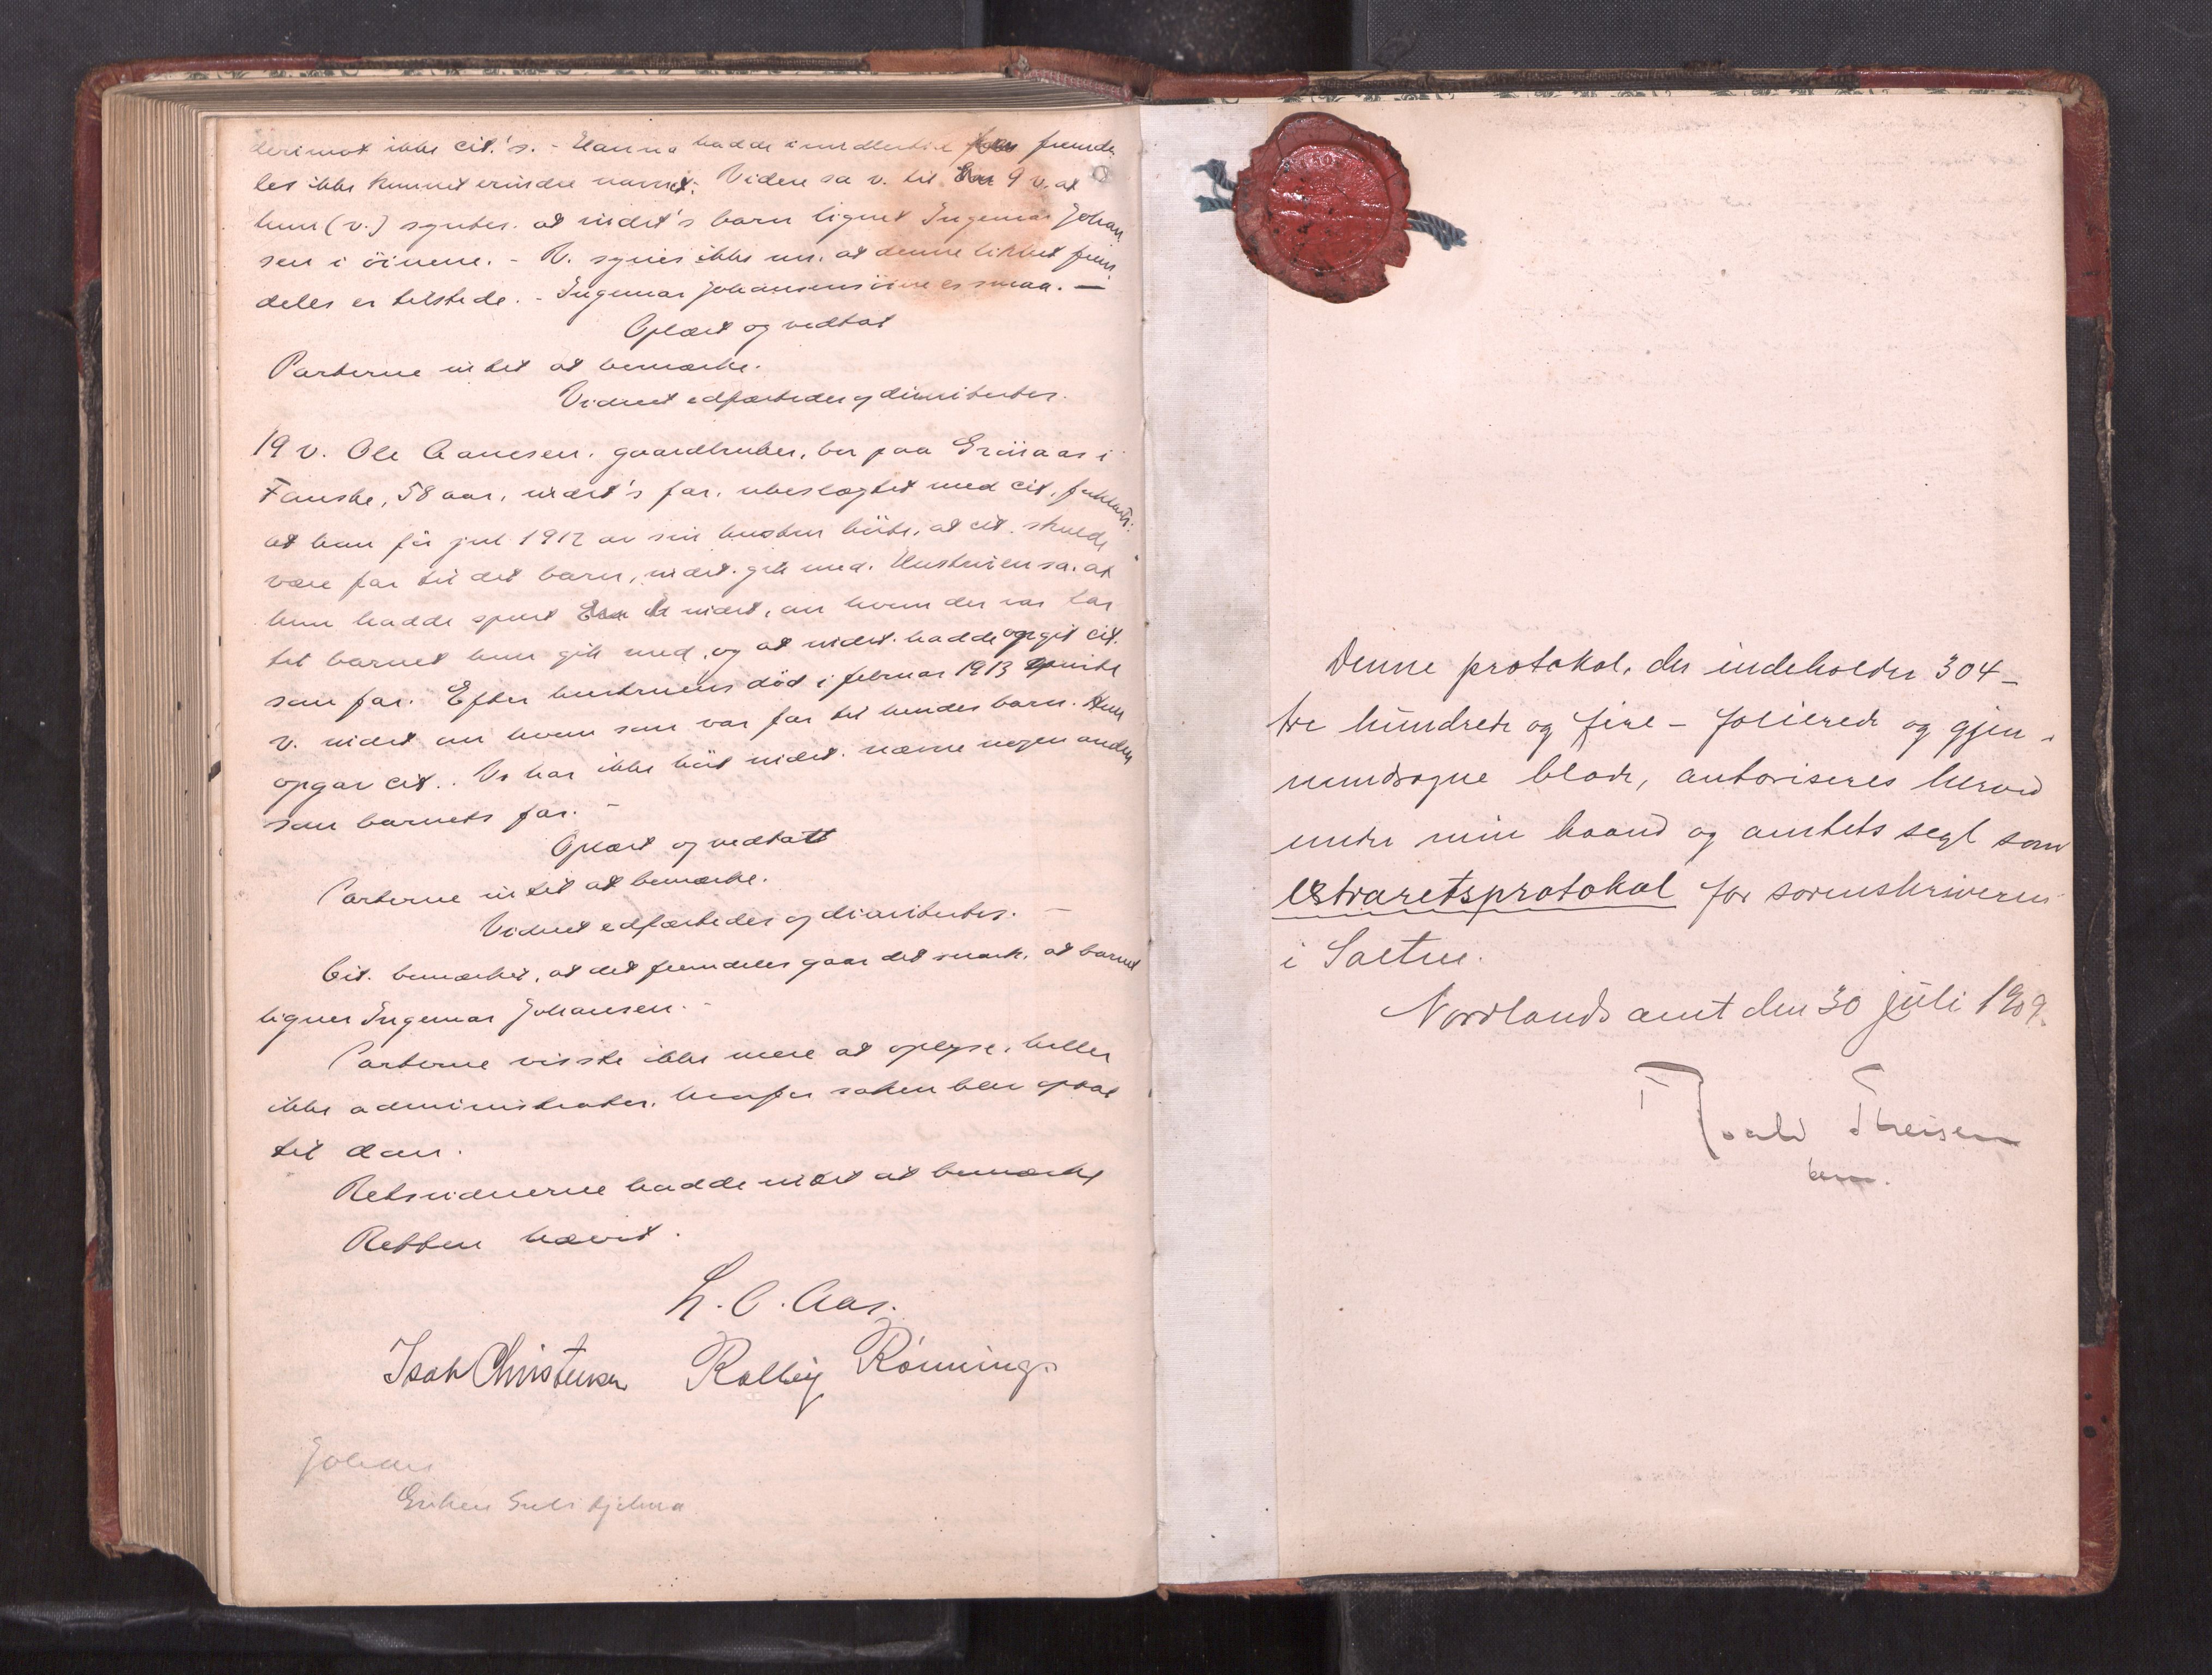 derimot ikke cit.'s. - Hanna hadde imidlertid fremde-
les ikke kunnet erindre navnet. Videre sa v. til 9 v. at
hun (v.) syntes. at indst's barn lignet Ingemar Johan
sen i öinene. - V. synes ikke nu. at denne likhet frem
deles er tilstede. - Ingemar Johansens öine er smaa. —
Oplæst og vedtat
Parterne intet at bemærke.
Vidnet edfæstedes og dimitertes.
19 v. Ole Aanesen. gaardbruker, bor paa Grönaas i
Fauske, 58 aar, indst's far. ubeslægtet med cit. forklarte:
at han för jul 1912 av sin hustru hörte, at cit. skulde
være far til det barn, indst. gik med. Hustruen sa. at
hun hadde spurt indst, om hvem der var far
til barnet hun gik med, og at indst. hadde opgit cit.
som far. Efter hustruens död i februar 1913 spurte
v. indst om hvem som var far til hendes barn. Hun
opgav cit.. V. har ikke hört indst. nævne nogen anden
som barnets far. -
Oplæst og vedtatt
Parterne intet at bemærke.
Vidnet edfæstedes og dimitertes. —
Cit. bemærket, at det fremdeles gaar det snak, at barnet
ligner Ingemar Johansen. -
Parterne visste ikke mere at oplyse. heller
ikke administrator. hvorfor saken blev optat
til dom.
Retsvidnerne hadde intet at bemærke
Retten hævet.
L. C. Aas.
Isak Christensen Rolleiy Rönning.
Johan
Eriken Sulitjelma
Denne protokol, der indeholder 304 -
tre hundrede og fire - folierede og gjen-
nemdragne blade, autoriseres herved
under min haand og amtets segl som
extraretsprotokol for sorenskriveren
i Salten.
Nordlands amt den 30 juli 1909.
Roald Theisen
kom.